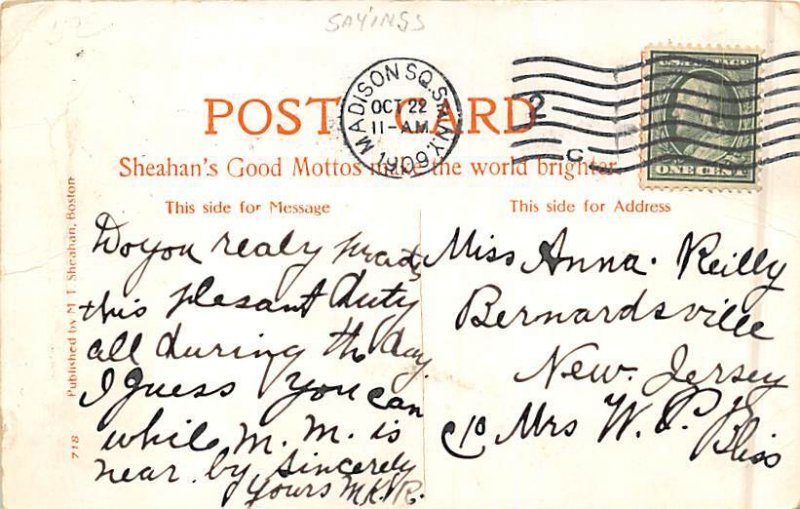 SAYINGS
MADISON SQ. STA. N.Y.
OCT 22
11-AM
1909
C
ONE CENT
POST CARD
Sheahan's Good Mottos make the world brighter.
This side for Message
This side for Address
Published by M. T. Sheahan, Boston
718
Do you realy
this plesant duty
all during the day.
I guess you can
while M. M. is
near by Sincerely
Yours M.K.R.
Miss Anna. Reilly
Bernardsville
New. Jersey
c/o Mrs W. P. Bliss